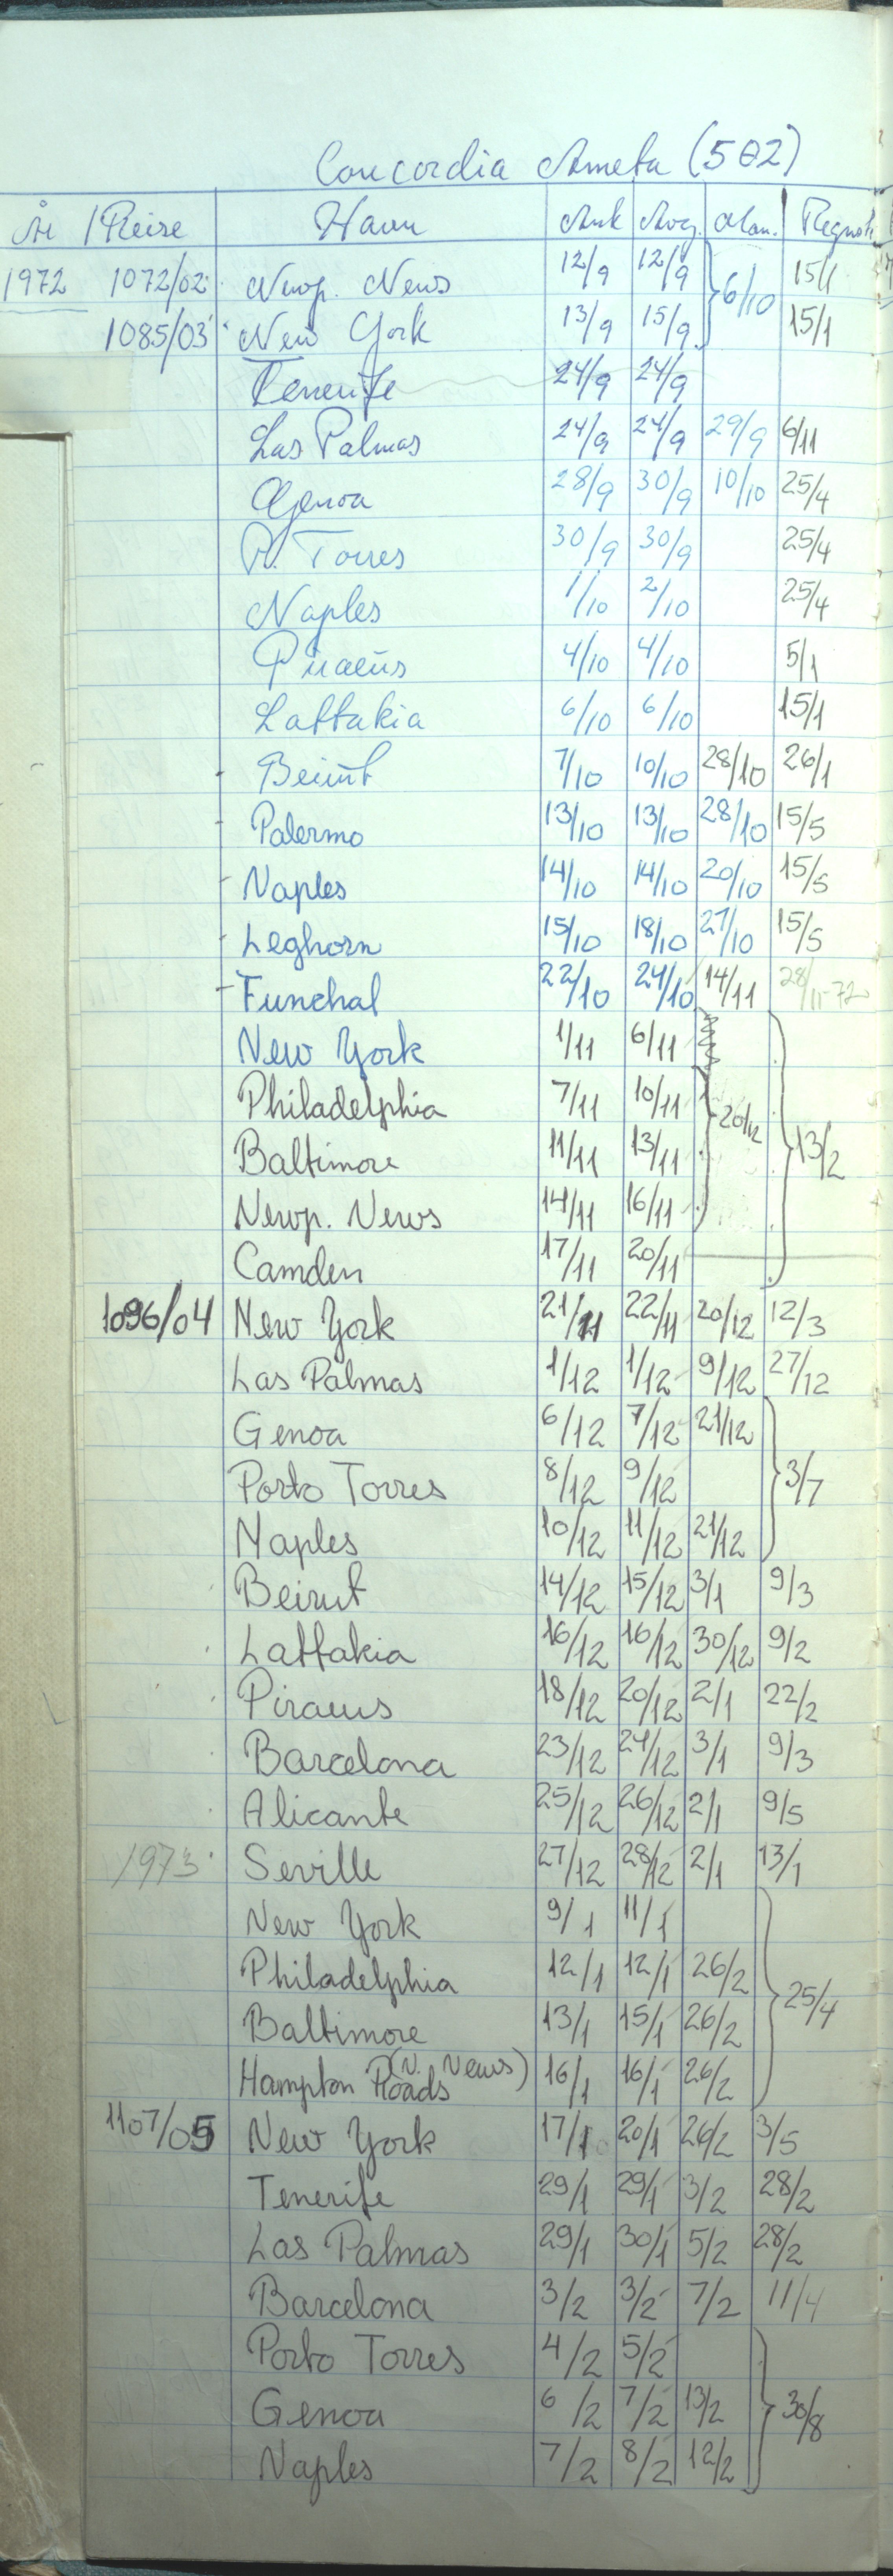 Concordia Ameta (502)
År / Reise Havn Ank Avg. Man. Regnsk
1972 1072/02 Newp. News 12/9 12/9 6/10 15/1
1085/03 New York 13/9 15/9 15/1
Tenerife 24/9 24/9
Las Palmas 24/9 24/9 29/9 6/11
Genoa 28/9 30/9 10/10 25/4
P. Torres 30/9 30/9 25/4
Naples 1/10 2/10 25/4
Piraeus 4/10 4/10 5/1
Lattakia 6/10 6/10 15/1
Beirut 7/10 10/10 28/10 26/1
Palermo 13/10 13/10 28/10 15/5
Naples 14/10 14/10 20/10 15/5
Leghorn 15/10 18/10 27/10 15/5
Funchal 22/10 24/10 14/11 28/11-72
New York 1/11 6/11
Philadelphia 7/11 10/11 20/12
Baltimore 11/11 13/11 13/2
Newp. News 14/11 16/11
Camden 17/11 20/11
1096/04 New York 21/11 22/11 20/12 12/3
Las Palmas 1/12 1/12 9/12 27/12
Genoa 6/12 7/12 21/12
Porto Torres 8/12 9/12 3/7
Naples 10/12 11/12 21/12
Beirut 14/12 15/12 3/1 9/3
Lattakia 16/12 16/12 30/12 9/2
Piraeus 18/12 20/12 2/1 22/2
Barcelona 23/12 24/12 3/1 9/3
Alicante 25/12 26/12 2/1 9/5
1973 Seville 27/12 28/12 2/1 13/1
New York 9/1 11/1
Philadelphia 12/1 12/1 26/2 25/4
Baltimore 13/1 15/1 26/2
Hampton Roads (N. News) 16/1 16/1 26/2
1107/05 New York 17/1 20/1 26/2 3/5
Tenerife 29/1 29/1 3/2 28/2
Las Palmas 29/1 30/1 5/2 28/2
Barcelona 3/2 3/2 7/2 11/4
Porto Torres 4/2 5/2
Genoa 6/2 7/2 13/2 30/8
Naples 7/2 8/2 12/2